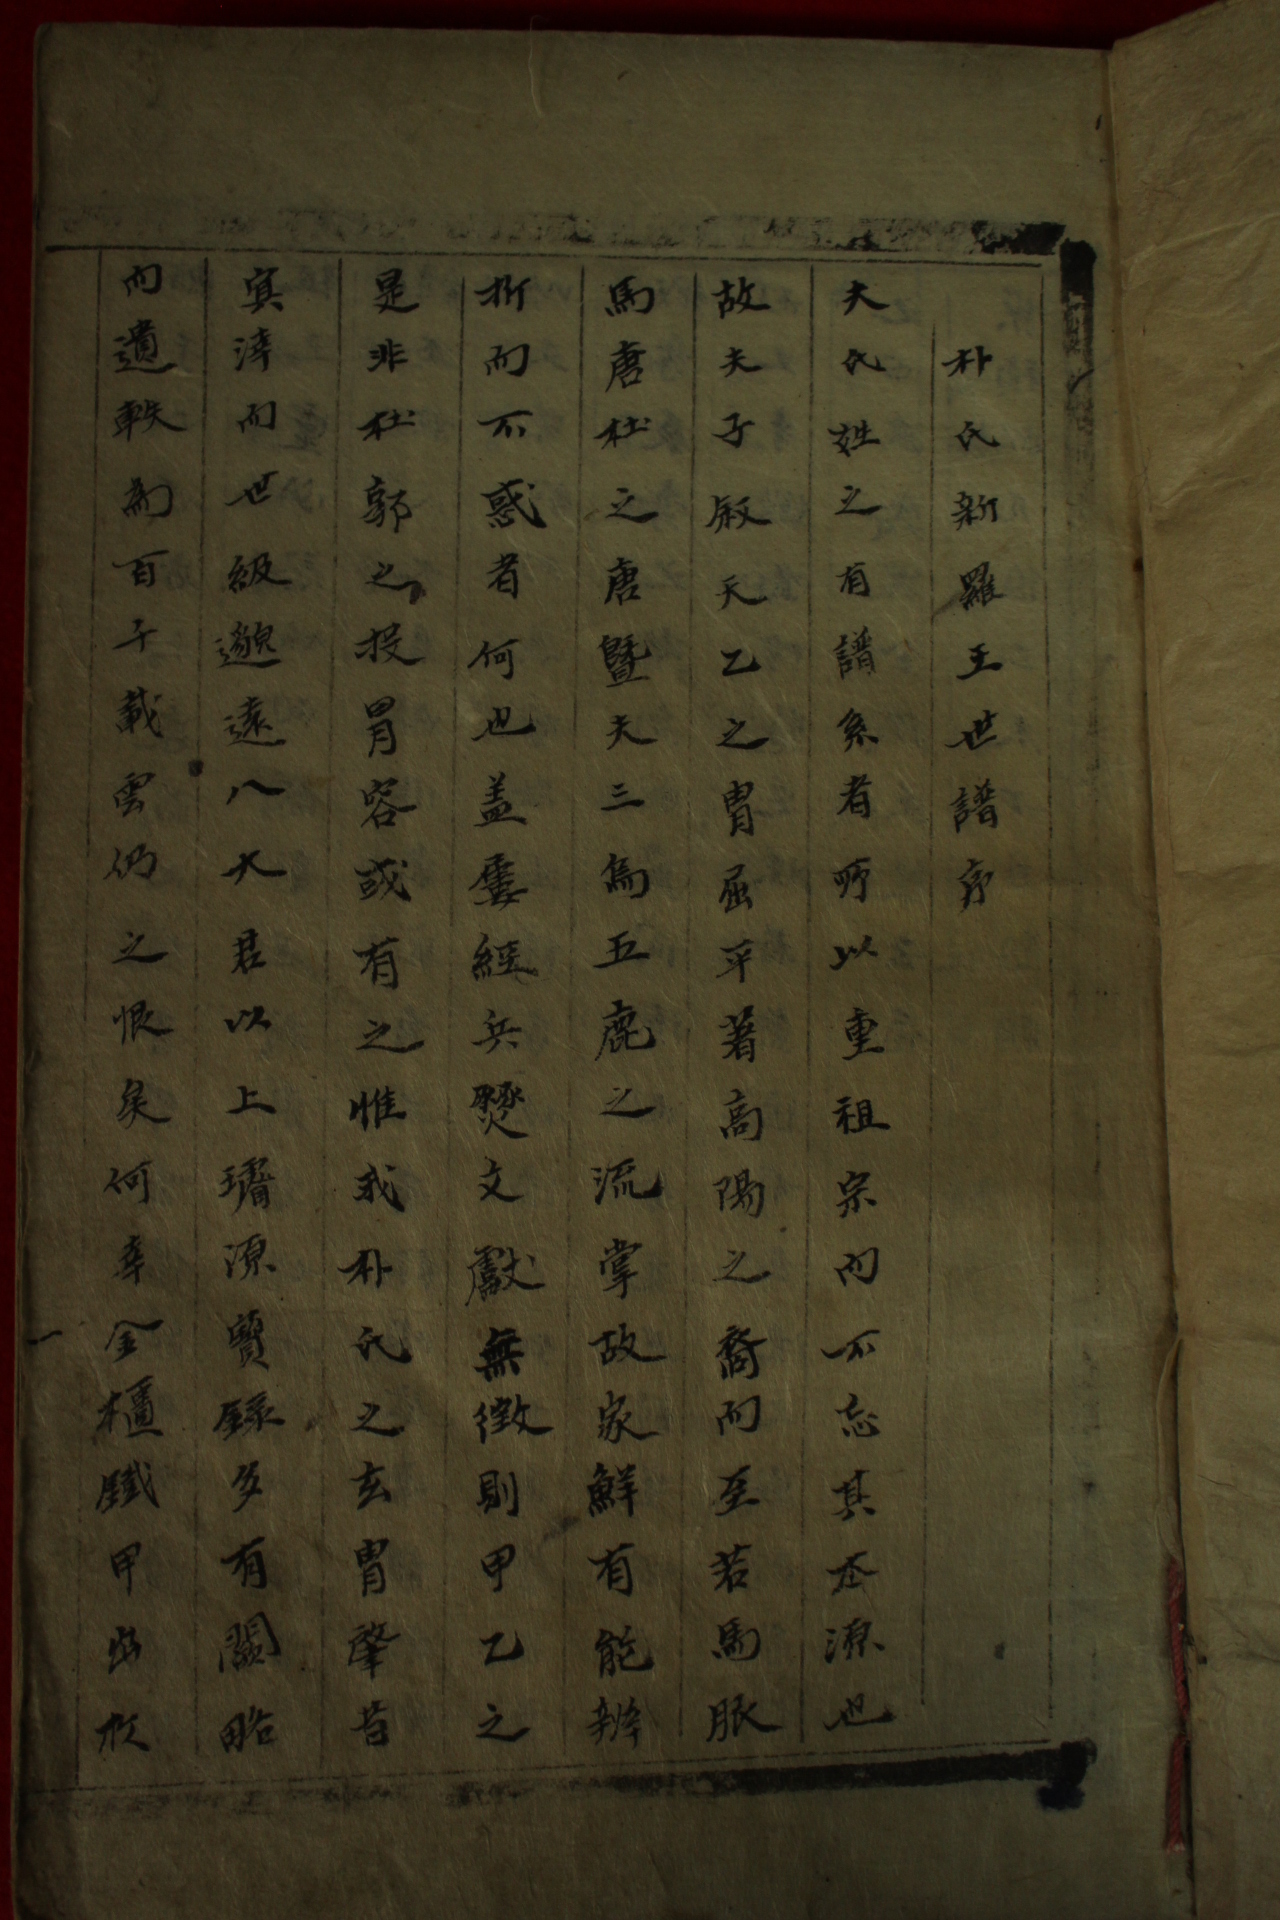 朴氏新羅王世譜序
夫氏姓之有譜系者所以重祖宗而不忘其本源也
故夫子叙天乙之胄屈平著高陽之裔而至若馬服
馬唐杜之唐曁夫三烏五鹿之流掌故家鮮有能辨
析而不惑者何也盖屢經兵燹文獻無徵則甲乙之
是非杜郭之投胃容或有之惟我朴氏之玄胄肇昔
冥涬而世級邈遠八大君以上璿源寶錄多有闕略
而遺軼爲百千載雲仍之恨矣何幸金櫃鐵甲出於